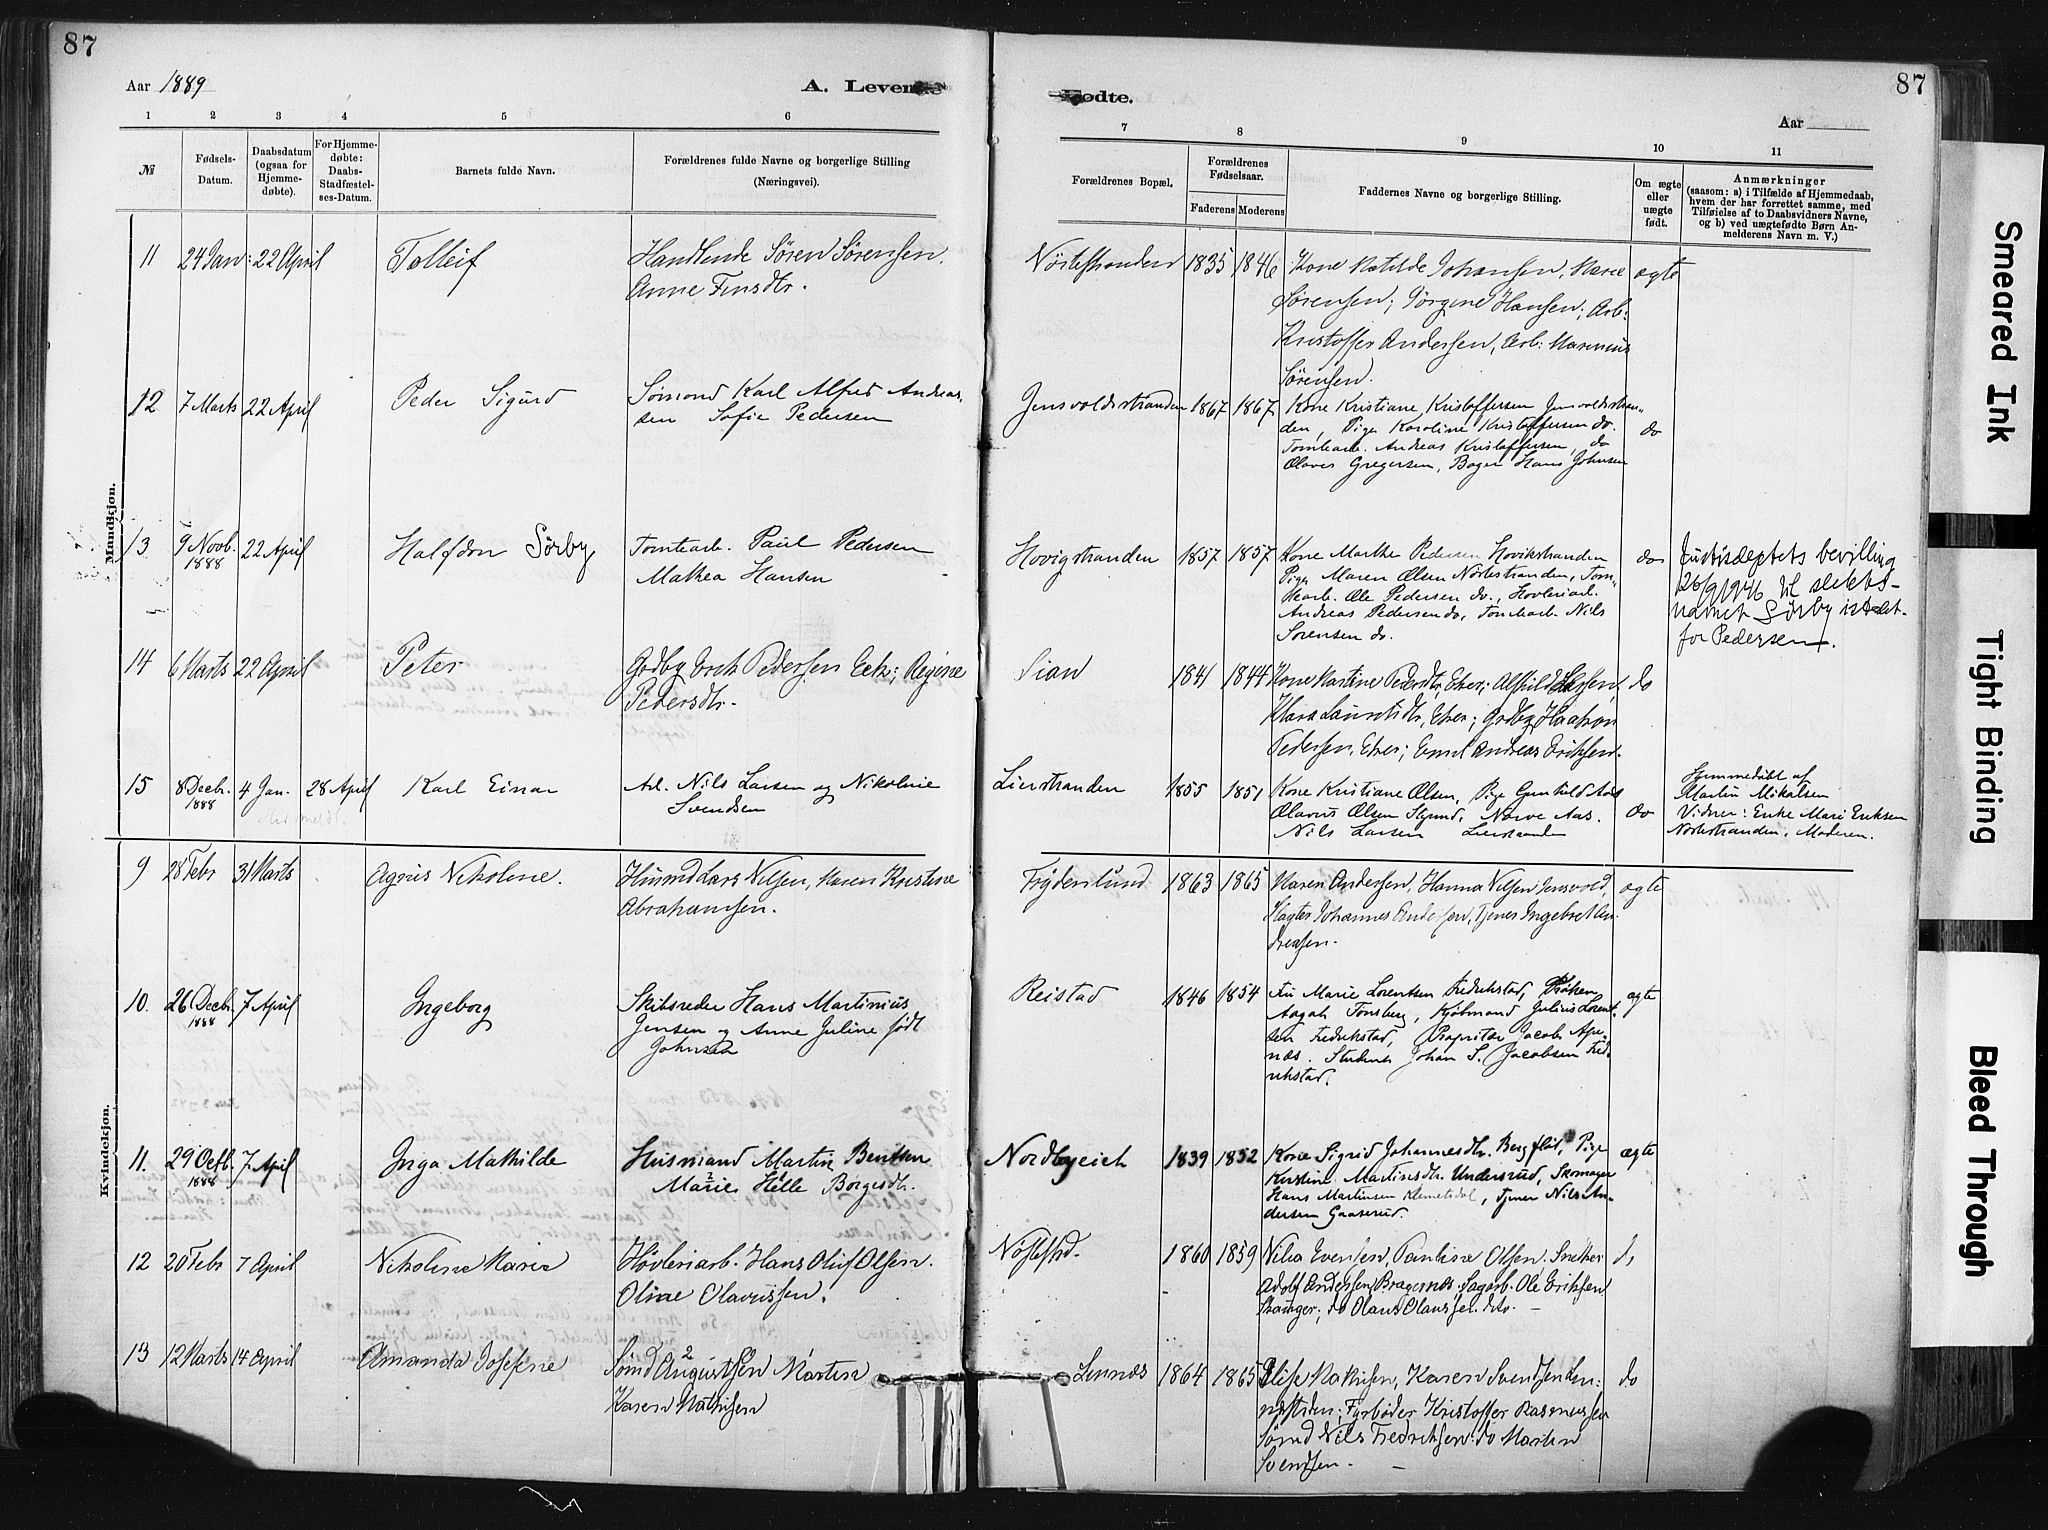 87
87
Aar 1889
A. Levende
Fødte.
Aar
1 2 3 4 5 6 7 8 9 10 11
№
Fødsels-
Datum.
Daabsdatum
(ogsaa for
Hjemme-
døbte).
For Hjemme-
døbte:
Daabs-
Stadfæstel-
ses-Datum.
Barnets fulde Navn.
Forældrenes fulde Navne og borgerlige Stilling
(Næringsvei).
Forældrenes Bopæl.
Forældrenes
Fødselsaar.
Faderens Moderens
Faddernes Navne og borgerlige Stilling.
Om ægte
eller
uægte
født.
Anmærkninger
(saasom: a) i Tilfælde af Hjemmedaab,
hvem der har forrettet samme, med
Tilføielse af to Daabsvidners Navne,
og b) ved uægtefødte Børn An-
melderens Navn m. V.)
Mandkjøn.
11 24 Jan: 22 April Tolleif
Handlende Søren Sørensen.
Anne Finsdtr.
Nöstestranden 1835 1846
Kone Matilde Johansen, Maree
Sørensen; Jörgine Hansen; Arb:
Kristoffer Andersen, Arb: Marenius
Sørensen.
ægte
12 7 Marts 22 April Peder Sigurd
Sømand Karl Alfred Andreas-
sen Sofie Pedersen
Jensvoldstranden 1867 1867
Kone Kristiane Kristoffersen Jensvoldstran-
den, Pige Karoline Kristoffersen do.
Tomtearb. Andreas Kristoffersen, do
Olaves Gregersen, Bager Hans Johnsen
do
13 9 Novb. 1888 22 April Halfdan Sörby
Tomtearb. Paul Pedersen
Mathea Hansen
Hovigstranden 1857 1857
Kone Marthe Pedersen Hovikstranden
Pige Maren Olsen Nöstestranden, Tom-
tearb. Ole Pedersen do, Hovleriarb.
Andreas Pedersen do, Tomtearb. Nils
Sorensen do.
do
Justisdeptets bevilling
26/9 1946 til slekts-
navnet Sörby istedet-
for Pedersen.
14 6 Marts 22 April Peter
Grdby Erik Pedersen Eek; Regine
Pedersdtr.
Lian 1841 1844
Kone Martine Pedersdtr, Eker;
Klara Lauritsdtr, Eker; Grdby Haakon
Pedersen, Eker; Emil Andreas Eriksen.
do
15 8 Decb. 1888 4 Jan. 28 April Karl Einar
Arb. Nils Larsen og Nikoline
Svendsen
Lierstranden 1855 1851
Kone Kristiane Olsen, Pige Gunhild Aas
Olavus Olsen Norve Aas.
Nils Larsen Lierstranden
do
Hjemmedöbt af
Martin Mikalsen
Vidner: Enke Mari Eriksen
Nöstestranden, Moderen.
Kvindekjøn.
9 28 Febr 31 Marts Agnes Nikoline.
Husmd Lars Nilsen, Maren Kristine
Abrahamsen.
Frydenlund 1863 1865
Maren Andersen, Hanna Nilsen Jensvold,
Slagter Johannes Andersen, Tjener Ingebret An-
dreasen.
ægte
10. 26 Decbr. 1888 7 April Ingeborg
Skibsreder Hans Martinius
Jensen og Anne Juline født
Johnsen
Reistad 1846 1854
Fru Marie Lorentzen Fredrikstad, Frøken
Aagah Tonsberg, Kjöbmand Julius Lorent-
sen Fredrikstad, Proprietær Jacob Ape-
næs. Student Johan S. Jacobsen Fred-
rikstad.
ægte
11. 29 Octb. 1888 7 April Inga Mathilde
Husmand Martin Bentsen
Maries Helle Borgesdtr.
Nordbyeich 1839 1852
Kone Sigrid Johannesdtr. Bergflöt, Pige
Kristine Martinsdtr. Undersrud, Skomager
Hans Martinsen Klemetsdal, Tjener Nils An-
dersen Gaaserud.
ægte
12 20 Febr 7 April Nikoline Marie
Høvleriarb. Hans Oluf Olsen.
Oline Olavussen.
Nøstestrd. 1860 1859
Nilia Evensen, Pauline Olsen, Snekker
Adolf Andersen Bragernes. Sagarb. Ole Eriksen
Stanger; do Olaus Olaussen. dito.
do
13 12 Marts 14 April Amanda Josefine
Sømd Augustsen Martin
Karen Mathisen
Lennæs 1864 1865
Elise Mathisen, Karen Svendsen Len-
næstrden; Fyrbøder Kristoffer Rasmussen
Sømd Nils Fredriksen. do Martin
Svendsen.
do
Smeared Ink
Tight Binding
Bleed Through